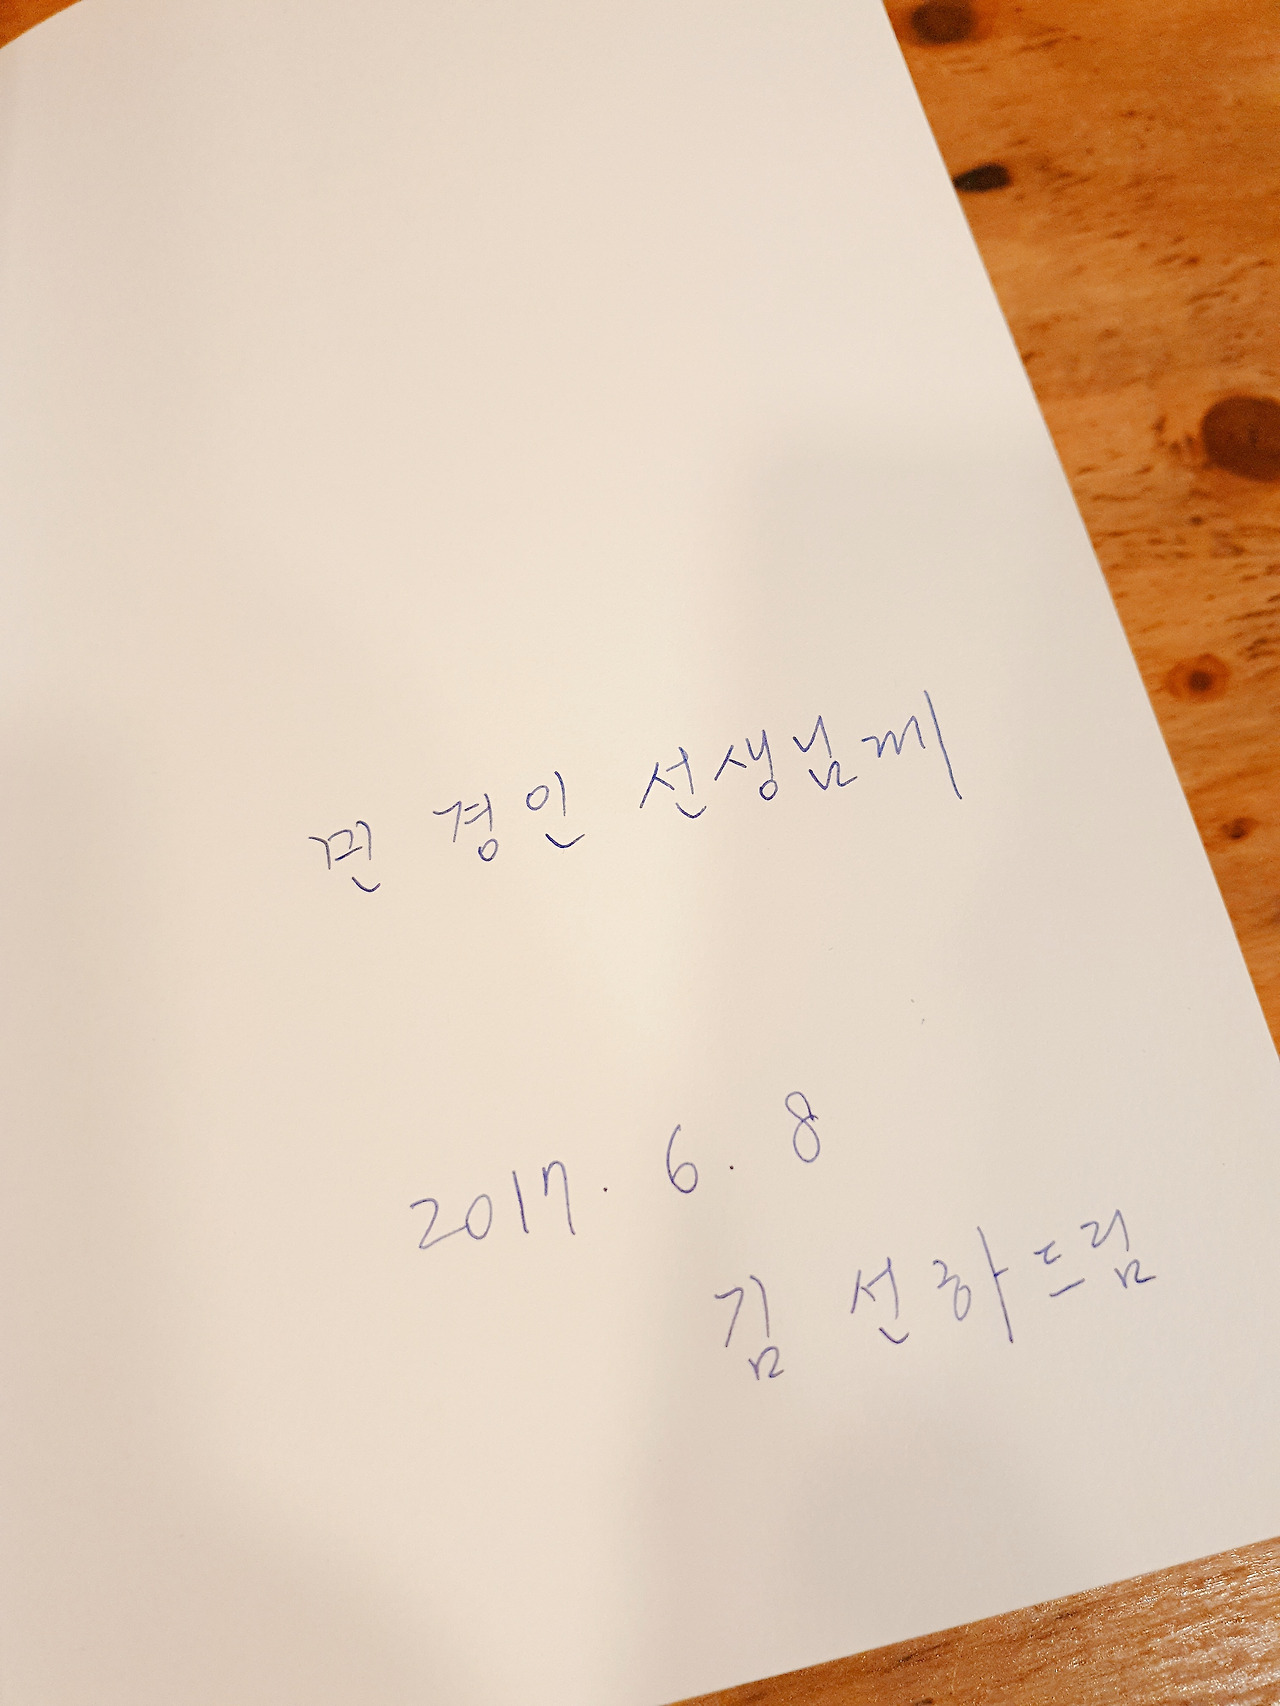 민 경인 선생님께
2017. 6. 8
김 선하 드림